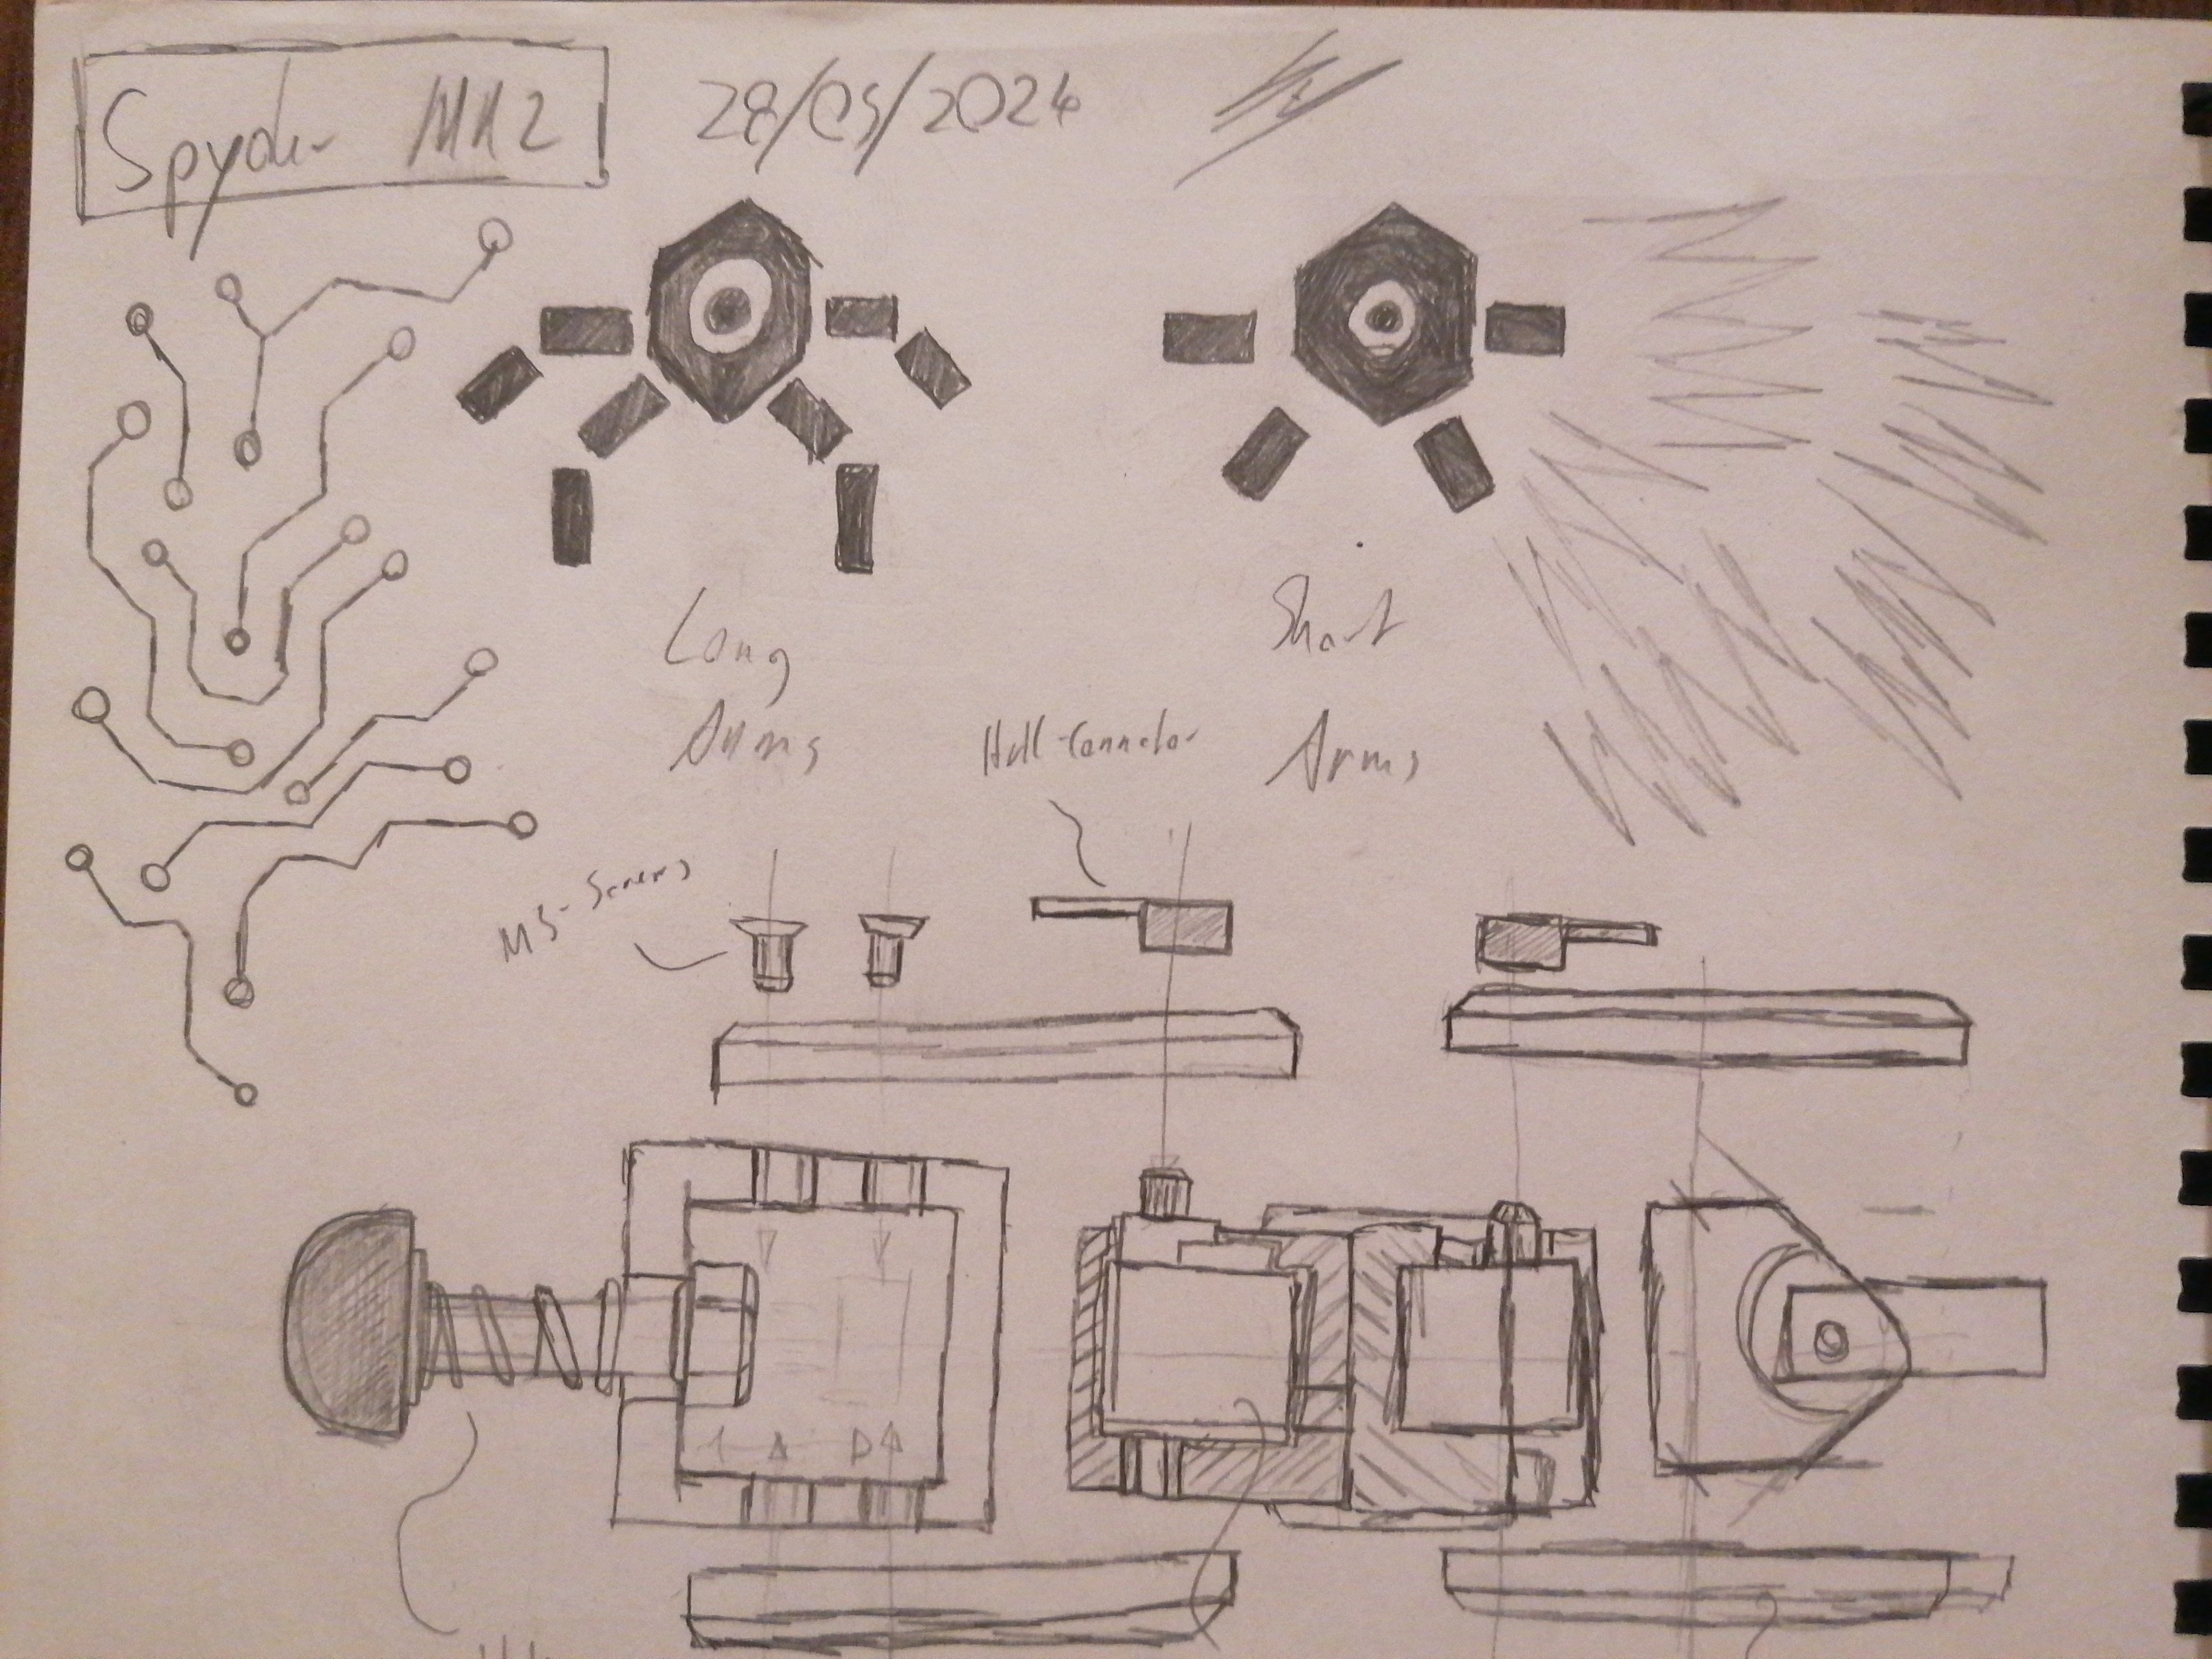 Spyder MK2
28/05/2024
Long
Arms
Short
Arms
Hull-Connector
M3-Screws